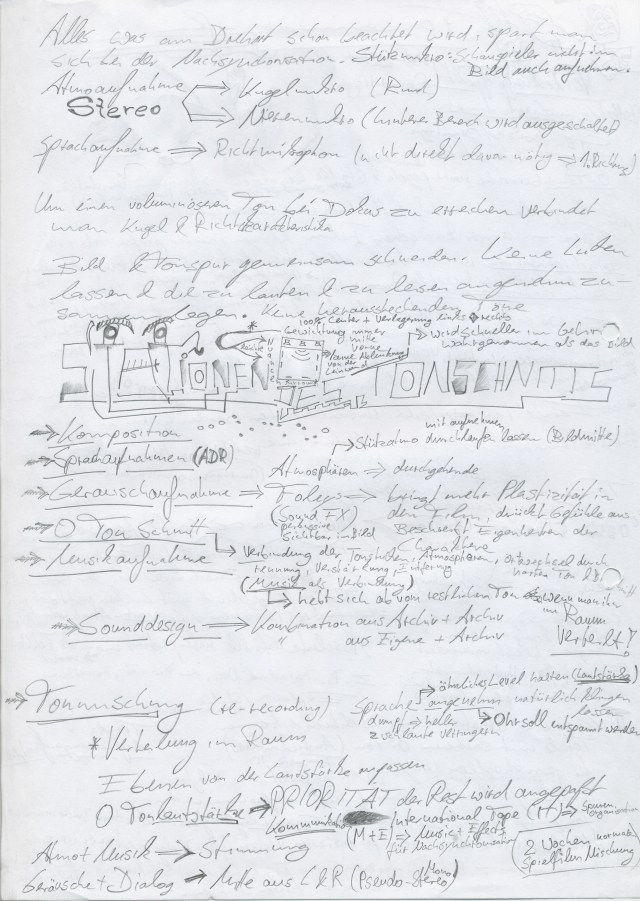 Alles was am Drehort schon beachtet wird, spart man
sich bei der Nachsynchronisation. Stützmikro: Schauspieler nicht im
Bild auch aufnehmen.
Atmoaufnahme Kugelmikro (Rund)
Stereo
Nierenmikro (hinterer Bereich wird ausgeschaltet)
Sprachaufnahme ⇒ Richtmikrophon (nicht direkt davon nötig ⇒ 1. Richtung)
Um einen voluminöseren Ton bei Dokus zu erreichen verbindet
man Kugel & Richtcharakteristik
Bild & Tonspur gemeinsam schneiden. Keine Lücken
lassen & die zu lauten & zu leisen angenehm zu-
sammenlegen. Keine herausstechenden Töne
100% Center + Verlagerung links rechts
Gewichtung immer
Mitte
keine Ablenkung
von der
Leinwand
wird schneller im Gehirn
wahrgenommen als das Bild
IONEN DES TONSCHNITTS
⇒ Komposition
mit aufnehmen
Stützatmo durchlaufen lassen (Bildmitte)
⇒ Sprachaufnahmen (ADR)
Atmosphären ⇒ durchgehende
⇒ Geräuschaufnahme ⇒ Foleys ⇒ bringt mehr Plastizität in
(Sound FX) den Film, drückt Gefühle aus
Sichtbar im Bild Beschreibt Eigenheiten der
Charaktere
⇒ O Ton Schnitt
Verbindung der Atmosphären,
⇒ Musikaufnahme
(Musik als Verbindung)
hebt sich ab vom restlichen Ton wenn man ihn
im Raum
Verteilt!
⇒ Sounddesign ⇒ Kombination aus Archiv + Archiv
" aus Eigene + Archiv
⇒ Tonmischung (re-recording)
ähnliches Level halten (Lautstärke)
Sprache angenehm natürlich klingen
lassen
dumpf ⇒ heller
Ohr soll entspannt werden
zu laute verringern
* Verteilung im Raum
Ebenen von der Lautstärke anpassen
O Tonlautstärke ⇒ PRIORITÄT der Rest wird angepaßt
International Tape (IT) ⇒
(M+E) ⇒ Music + Effects
für Nachsynchronisation
2 Wochen normale
Spielfilm Mischung
Atmo + Musik ⇒ Stimmung
Geräusche + Dialog ⇒ Mitte aus L & R (Pseudo-Stereo)
Mono